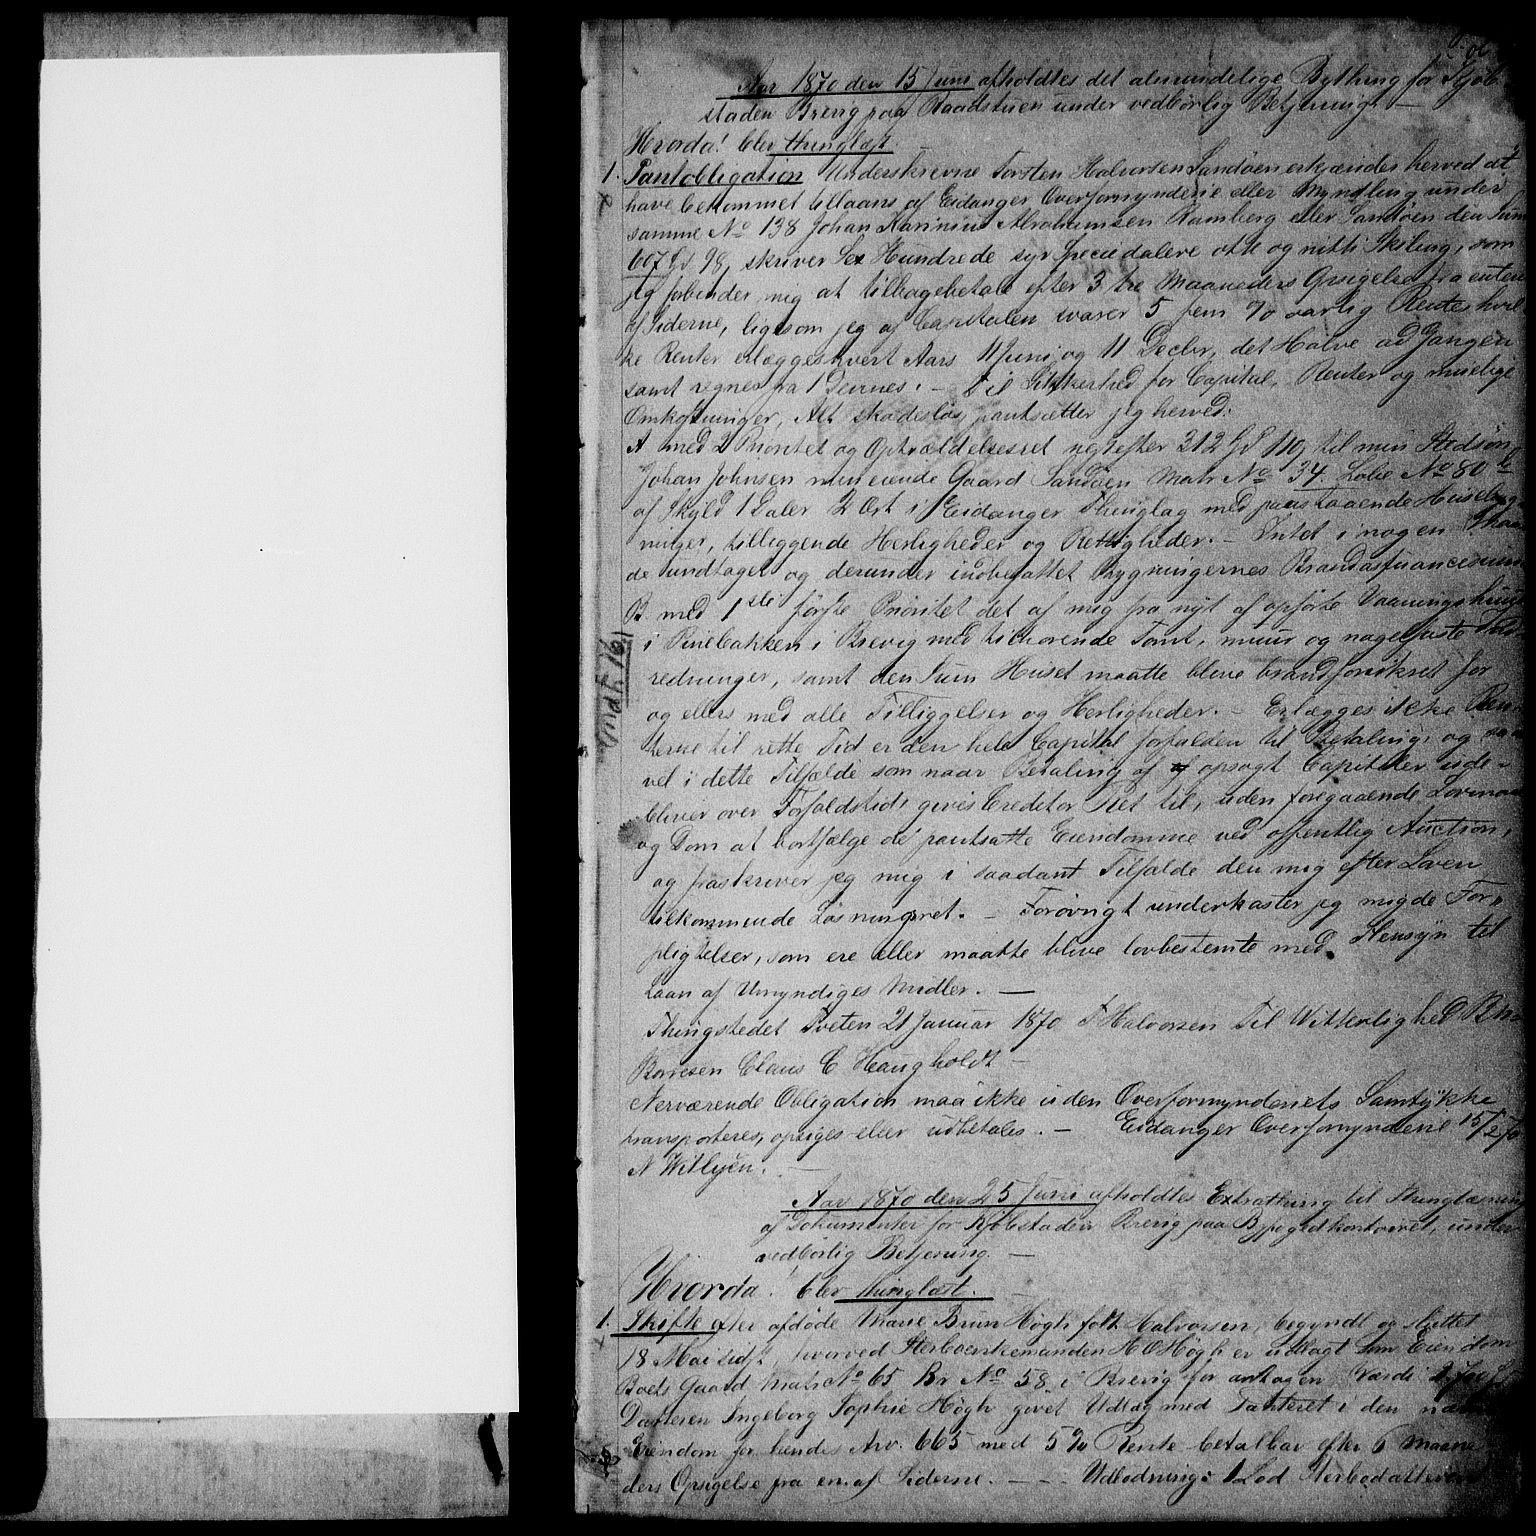 Aar 1870 den 15 Juni afholdtes det almindelige Bything for Kjøb-
staden Brevig paa Raadstuen under vedbørlig Betjening. —
Hvorda! blev thinglæst.
1. Pantobligation Underskrevne Torsten Halvorsen Sandøen erkjænder herved at
have bekommet tillaans af Eidanger Overformynderie eller Myndling under
samme No 138 Johan Karinius Abrahamsen Ramberg eller Sandøen den Sum
607 Spd 98, skriver Sex Hundrede syv Speciedalere otte og nitti Skilling, som
jeg forbinder mig at tilbagebetale efter 3 tre Maaneders Opsigelse fra enten
af Siderne, ligesom jeg af Capitalen svarer 5 fem % aarlig Rente hvil-
ke Renter erlægges hvert Aars 11 Juni og 11 Decbr, det Halve ad Gangen
samt regnes fra Devines. — Til Sikkerhed for Capital, Renter og muelige
Omkostninger, Alt skadesløs, pantsætter jeg herved:
A med 2 Prioritet og Opträdelsesret next efter 312 Spd 110, til min Stedsøn
Johan Johnsen min eiende Gaard Sandøen Matr No 34. Løbe No 80 b
af Skyld 1 Daler 2 Ort i Eidanger Thinglag med paastaaende Husebyg-
ninger, tilliggende Herligheder og Rettigheder. — Intet i nogen Maa-
de undtaget og derunder indbefattet Bygningernes Brandassurancesum
B. med 1ste første Prioritet det af mig fra nyt af opførte Vaaningshuus
i Ruiebakken i Brevig med tilhørende Tomt, muur og nagelfaste Ind-
redninger, samt den Sum Huset maatte blive brandforsikret for
og ellers med alle Tilliggelser og Herligheder. — Erlægges ikke Ren-
terne til rette Tid er den hele Capital forfalden til Betaling, og saa-
vel i dette Tilfælde som naar Betaling af opsagt Capitaler ude-
bliver over Forfaldstid, gives Creditor Ret til, uden foregaaende Lovmaal
og Dom at bortsælge de pantsatte Eiendomme ved offentlig Auction,
og fraskriver jeg mig i saadant Tilfælde den mig efter Loven
tilkommende Løsningsret. — Forøvrigt underkaster jeg mig de For-
pligtelser, som ere eller maatte blive lovbestemte med Hensyn til
Laan af Umyndiges Midler. —
Thingstedet Tveten 21 Januar 1870 T Halvorsen Til Vitterlighed
Børresen Claus C Haugholdt —
Nerværende Obligation maa ikke uden Overformynderiets Samtykke
transporteres, opsiges eller udbetales. — Eidanger Overformynderie 15/2 70
N Wettgen.
Aar 1870 den 25 Juni afholdtes Extrathing til Thinglæsning
af Dokumenter for Kjøbstaden Brevig paa Byfogedkontoiret, under
vedbørlig Betjening. —
Hvorda! blev thinglæst.
1. Skifte efter afdøde Marie Brun Høgh født Halvorsen, begyndt og sluttet
18 Mai sidst, hvorved Sterboenkemanden H O Høgh er udlagt som Eiendom
Boets Gaard Matr No 65 Br No 58. i Brevig for antagen Værdi 2,700
Datteren Ingeborg Sophie Høgh givet Udlæg med Panteret i den nævnte
Eiendom for hendes Arv. 665 med 5 % Rente betalbar efter 6 Maane-
ders Opsigelse fra en af Siderne. — — Udlodning: 1 Lod Sterbodatteren
Indf. 76